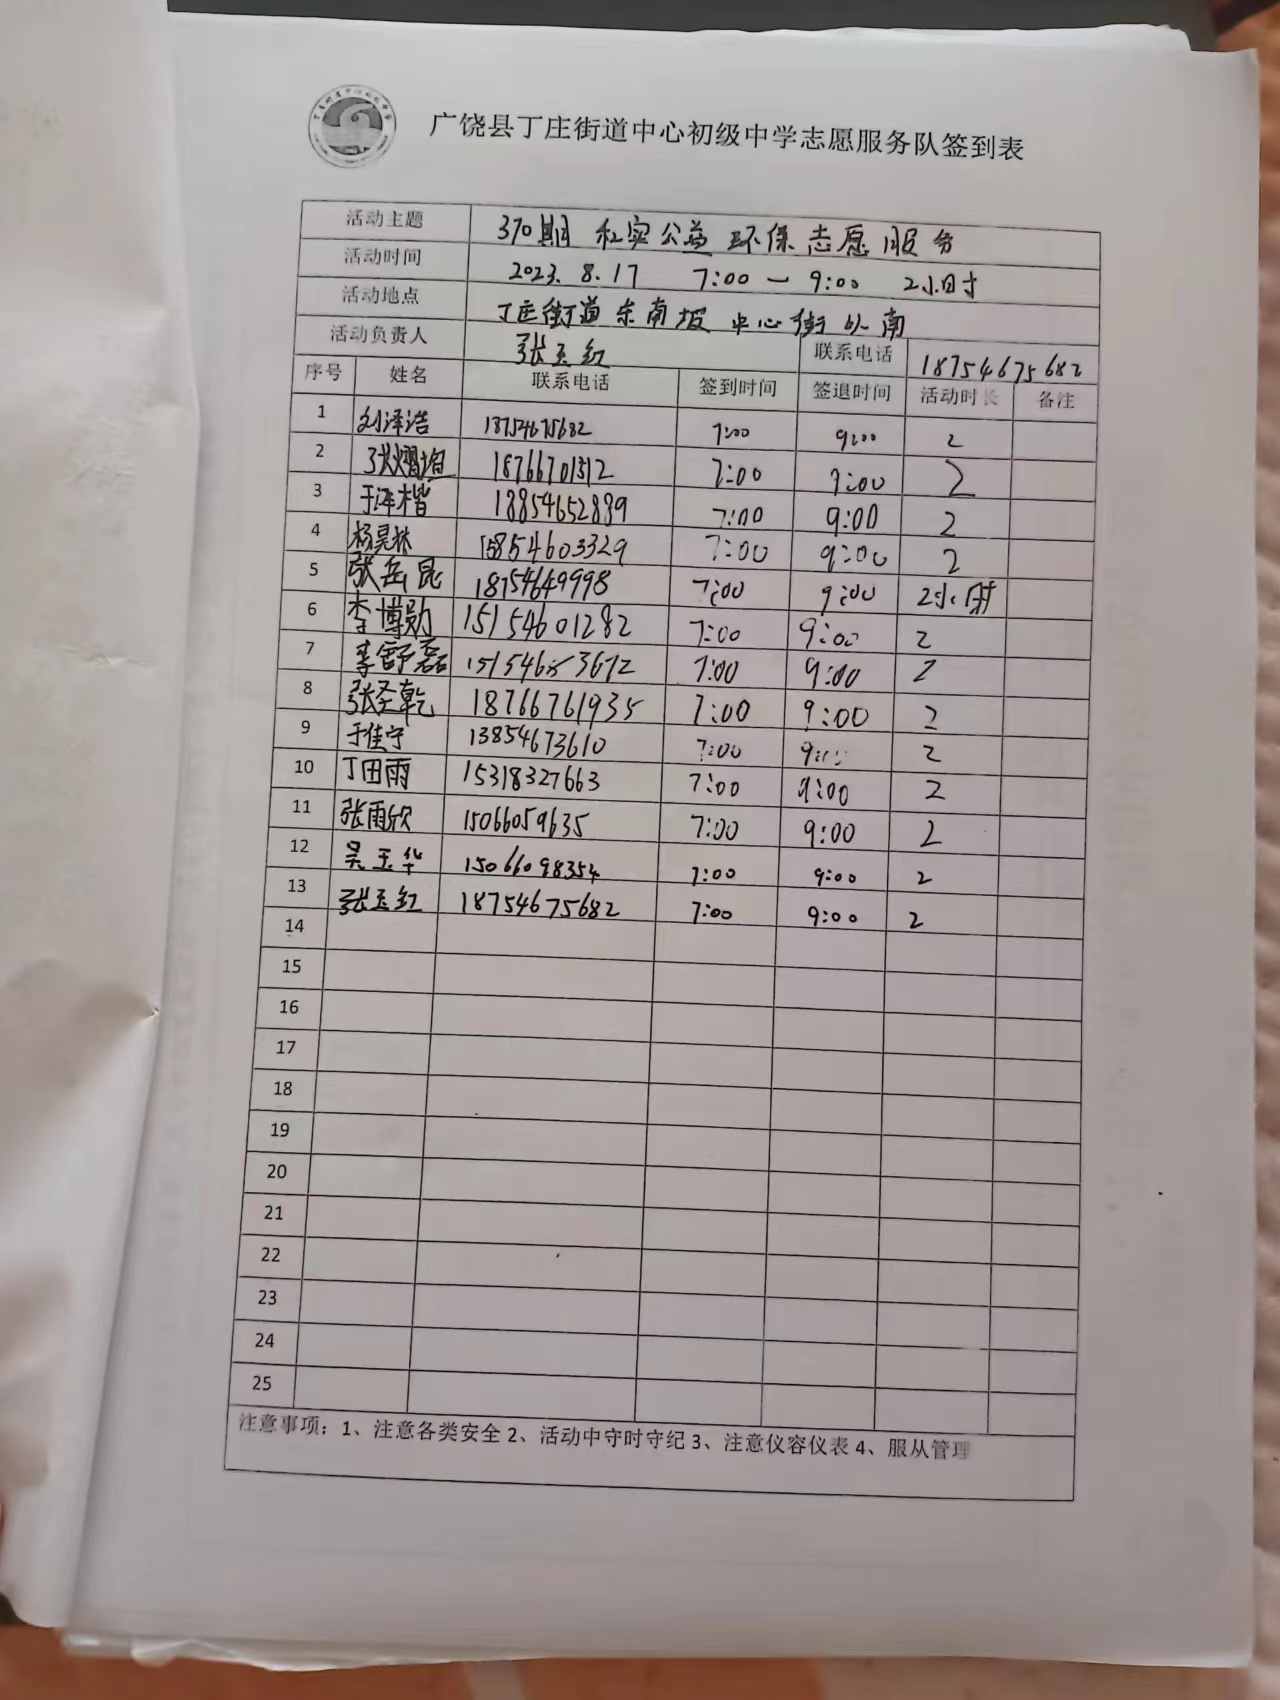 广饶县丁庄街道中心初级中学志愿服务队签到表
活动主题 370期 公益 环保志愿服务
活动时间 2023.8.17 7:00—9:00 2小时
活动地点 丁庄街道东南坡 中心街 南
活动负责人 张玉红 联系电话 18754675682
序号 姓名 联系电话 签到时间 签退时间 活动时长 备注
1 刘泽浩 18754675682 7:00 9:00 2
2 18766701512 7:00 9:00 2
3 于泽楷 18854652889 7:00 9:00 2
4 杨昊林 15854603329 7:00 9:00 2
5 张岳昆 18754649998 7:00 9:00 2小时
6 李博勋 15154601282 7:00 9:00 2
7 李舒磊 7:00 9:00 2
8 张圣乾 18766761935 7:00 9:00 2
9 于佳宁 13854673610 7:00 2
10 丁田雨 15318327663 7:00 9:00 2
11 张雨欣 15066059635 7:00 9:00 2
12 吴玉华 15066098354 7:00 9:00 2
13 张玉红 18754675682 7:00 9:00 2
14
15
16
17
18
19
20
21
22
23
24
25
注意事项：1、注意各类安全 2、活动中守时守纪 3、注意仪容仪表 4、服从管理